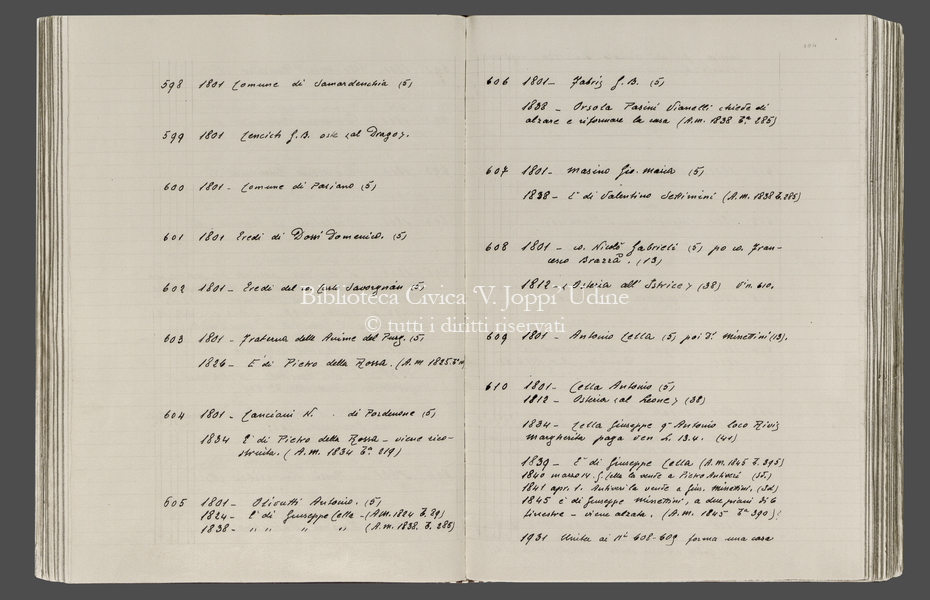 598 1801 Comune di Samardenchia (5)
599 1801 Cencich G.B. oste "al Drago".
600 1801 - Comune di Pasiano (5)
601 1801 Eredi di Dossi Domenico. (5)
602 1801 - Eredi del Savorgnan (5)
603 1801 - Fraterna delle Anime del Purg. (5)
1826 - E' di Pietro della Rossa. (A.M 1825.
604 1801 - Canciani N. di Pordenone (5)
1834 E' di Pietro della Rossa - viene rico-
struita. (A.M. 1834 219)
605 1801 - Antonio. (5)
1824 - E' di Giuseppe Cella - (A.M. 1824 89)
1838 - " " " " (A.M. 1838. 285)
606 1801 - Fabriz G.B. (5)
1838 - Orsola Pasini Vianelli chiede di
alzare e riformare la casa (A.M. 1838 285)
607 1801 - Masino Gio. Maria (5)
1838 - E' di Valentino Settimini (A.M. 1838 285)
608 1801 - co. Nicolò Gabrieli (5) poi co. Fran-
cesco Brazzà. (13)
1812 - "Osteria all'Istrice" (38) V. n. 610.
609 1801 - Antonio Cella (5) poi Minettini (13).
610 1801 - Cella Antonio (5)
1812 - Osteria "al Leone" (38)
1834 - Cella Giuseppe q.m Antonio loco
Margherita paga ven L. 13.4. (41)
1839 - E' di Giuseppe Cella (A.M. 1845 395)
1840 marzo 14. G. Cella la vende a Pietro Antivari
1841 apr. 1. Antivari la vende a Gius. Minettini.
1845 è di Giuseppe Minettini, a due piani di 6
finestre - viene alzata. (A.M. 1845 390)
1931 Unita ai N.i 608-609 forma una casa
Biblioteca Civica "V. Joppi" Udine
© tutti i diritti riservati